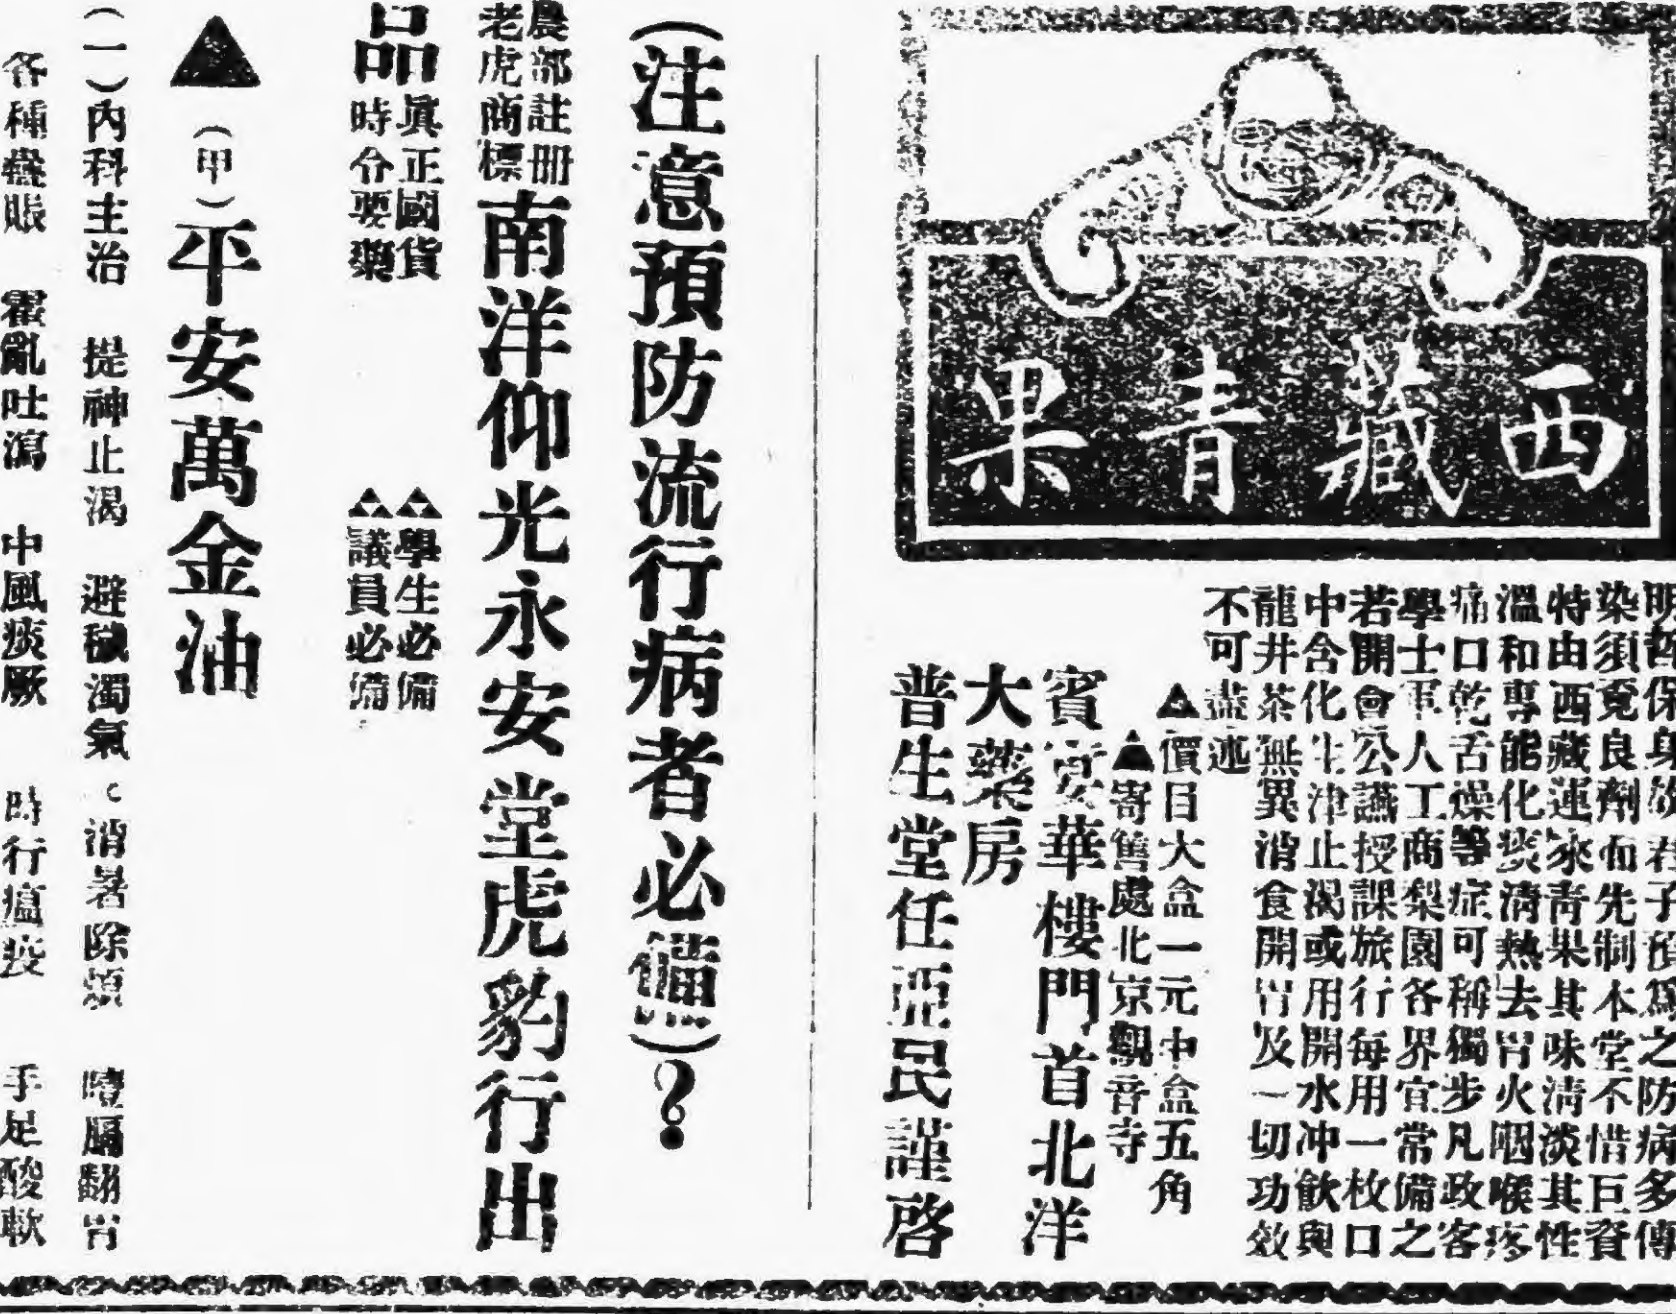 西藏青果
明哲保身故君子預爲之防病多傳
染須覓良劑而先制本堂不惜巨資
特由西藏運來青果其味清淡其性
溫和專能化痰清熱去胃火咽喉疼
痛口乾舌燥等症可稱獨步凡政客
學士軍人工商梨園各界宜常備之
若開會公讌授課旅行每用一枚口
中含化生津止渴或用開水冲飲與
龍井茶無異消食開胃及一切功效
不可盡述
價目大盒一元中盒五角
寄售處北京觀音寺
賓宴華樓門首北洋
大藥房
普生堂任亞民謹啓
(注意預防流行病者必備)?
農部註冊
老虎商標
南洋仰光永安堂虎豹行出
品
眞正國貨
時令要藥
學生必備
議員必備
▲(甲)平安萬金油
(一)內科主治 提神止渴 避穢濁氣。消暑除煩 噎膈翻胃
各種蠱脹 霍亂吐瀉 中風痰厥 時行瘟疫 手足酸軟